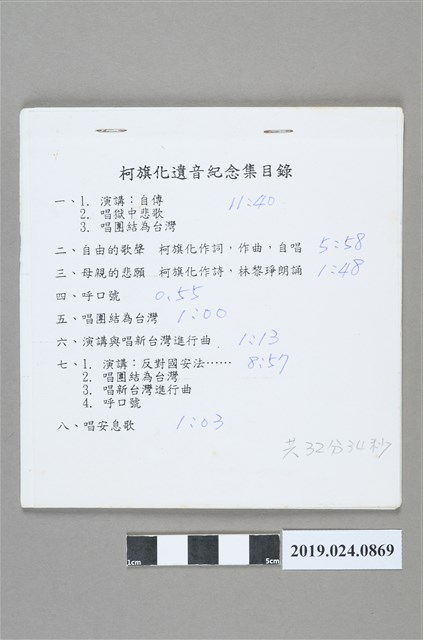 柯旗化遺音紀念集目錄
一、1. 演講：自傳 11:40
2. 唱獄中悲歌
3. 唱團結為台灣
二、自由的歌聲 柯旗化作詞，作曲，自唱 5:58
三、母親的悲願 柯旗化作詩，林黎琤朗誦 1:48
四、呼口號 0.55
五、唱團結為台灣 1:00
六、演講與唱新台灣進行曲 1:13
七、1. 演講：反對國安法…… 8:57
2. 唱團結為台灣
3. 唱新台灣進行曲
4. 呼口號
八、唱安息歌 1:03
共32分34秒
1cm 5cm
2019.024.0869